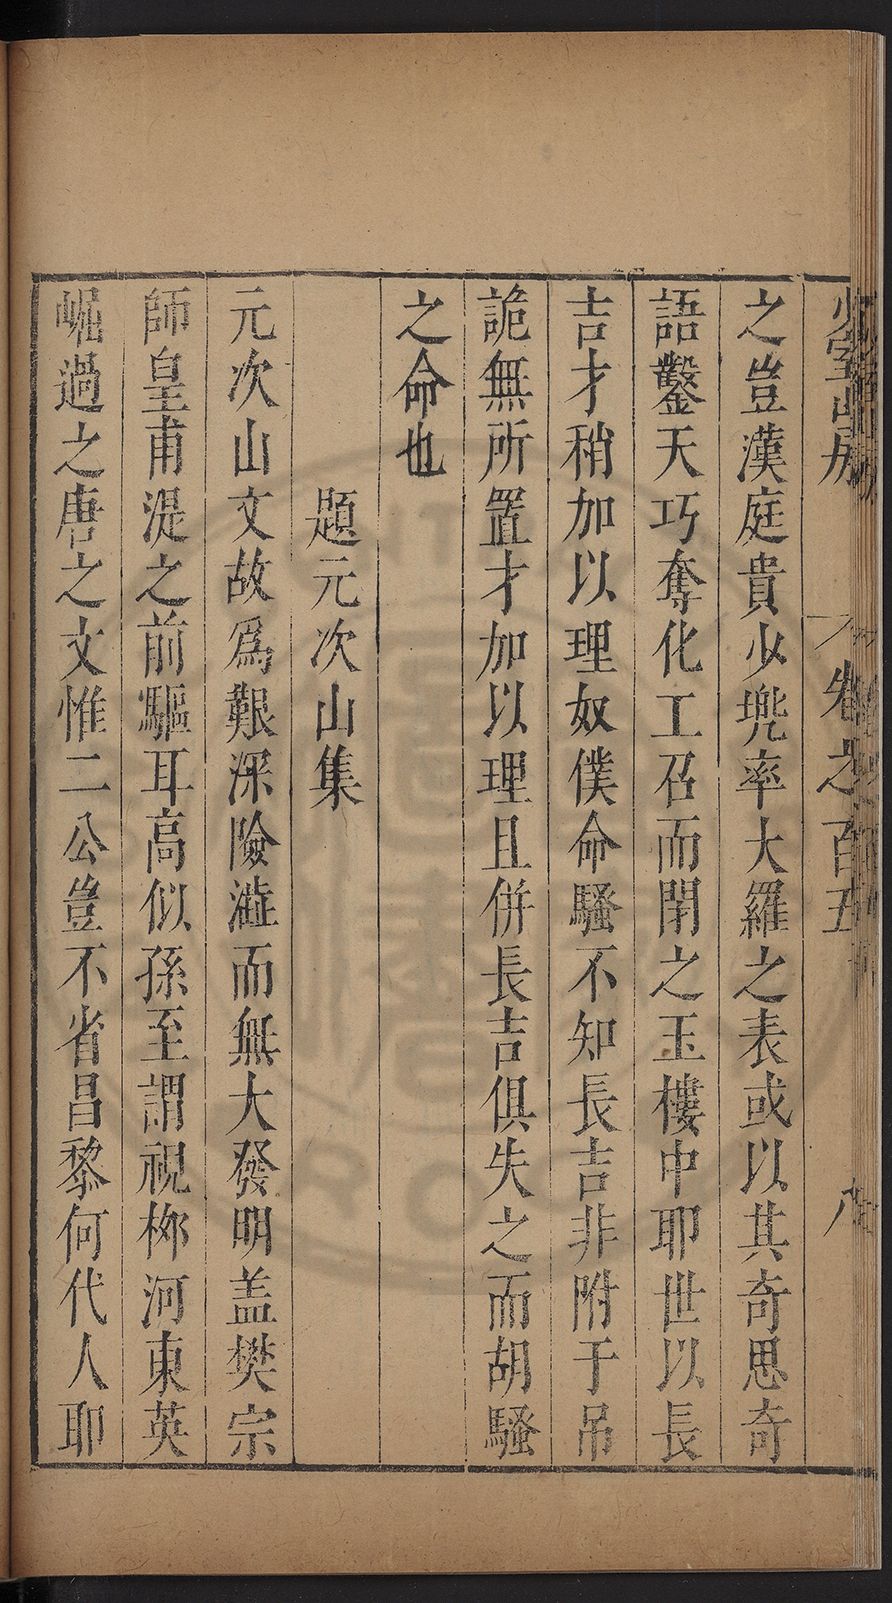 少室山房 卷之百五 八
之豈漢庭貴少兠率大羅之表或以其奇思奇
語鑿天巧奪化工召而閉之玉樓中耶世以長
吉才稍加以理奴僕命騷不知長吉非附于吊
詭無所置才加以理且併長吉俱失之而胡騷
之命也
題元次山集
元次山文故爲艱深險澁而無大發明盖樊宗
師皇甫湜之前驅耳高似孫至謂視桞河東英
崛過之唐之文惟二公豈不省昌黎何代人耶